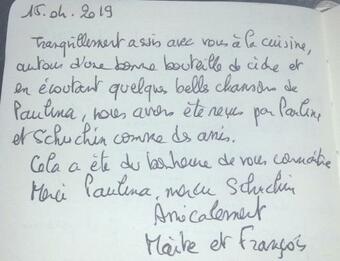 15.04.2019
Tranquillement assis avec vous à la cuisine,
autour d'une bonne bouteille de cidre et
en écoutant quelques belles chansons de
Paulina, nous avons été reçus par Pauline
et Schuchin comme des amis.
Cela a été du bonheur de vous connaître
Merci Paulina, merci Schuchin
Amicalement
Maïte et François